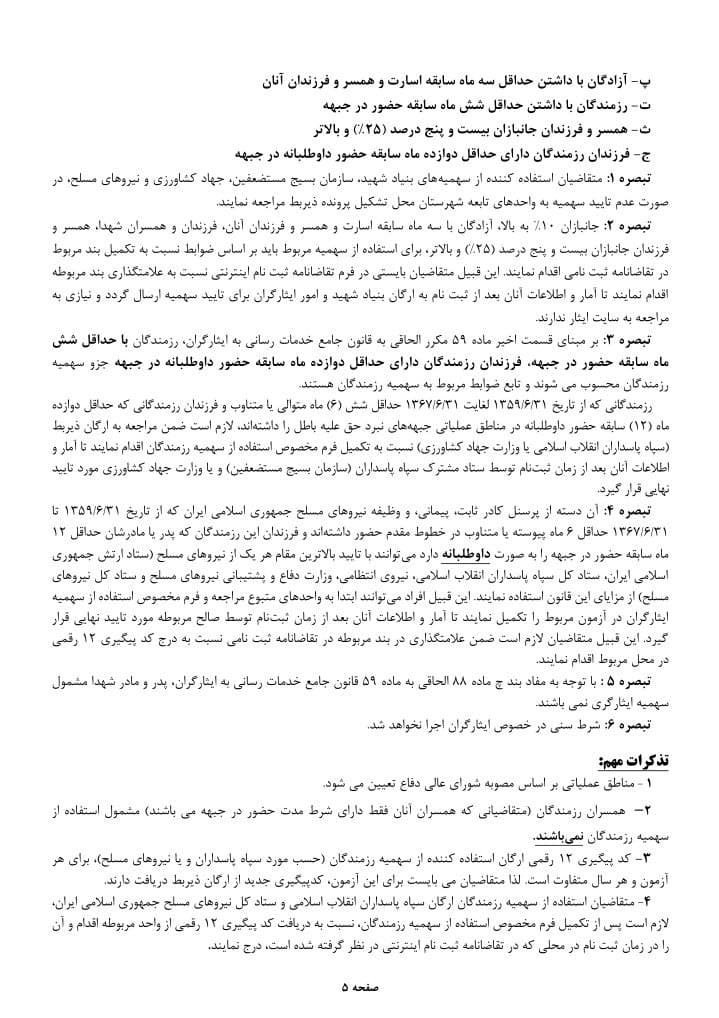 پ- آزادگان با داشتن حداقل سه ماه سابقه اسارت و همسر و فرزندان آنان
ت- رزمندگان با داشتن حداقل شش ماه سابقه حضور در جبهه
ث- همسر و فرزندان جانبازان بیست و پنج درصد (۲۵٪) و بالاتر
ج- فرزندان رزمندگان دارای حداقل دوازده ماه سابقه حضور داوطلبانه در جبهه
تبصره ۱: متقاضیان استفاده کننده از سهمیه‌های بنیاد شهید، سازمان بسیج مستضعفین، جهاد کشاورزی و نیروهای مسلح، در
صورت عدم تایید سهمیه به واحدهای تابعه شهرستان محل تشکیل پرونده ذیربط مراجعه نمایند.
تبصره ۲: جانبازان ۱۰٪ به بالا، آزادگان با سه ماه سابقه اسارت و همسر و فرزندان آنان، فرزندان و همسران شهدا، همسر و
فرزندان جانبازان بیست و پنج درصد (۲۵٪) و بالاتر، برای استفاده از سهمیه مربوط باید بر اساس ضوابط نسبت به تکمیل بند مربوط
در تقاضانامه ثبت نامی اقدام نمایند. این قبیل متقاضیان بایستی در فرم تقاضانامه ثبت نام اینترنتی نسبت به علامتگذاری بند مربوطه
اقدام نمایند تا آمار و اطلاعات آنان بعد از ثبت نام به ارگان بنیاد شهید و امور ایثارگران برای تایید سهمیه ارسال گردد و نیازی به
مراجعه به سایت ایثار ندارند.
تبصره ۳: بر مبنای قسمت اخیر ماده ۵۹ مکرر الحاقی به قانون جامع خدمات رسانی به ایثارگران، رزمندگان با حداقل شش
ماه سابقه حضور در جبهه، فرزندان رزمندگان دارای حداقل دوازده ماه سابقه حضور داوطلبانه در جبهه جزو سهمیه
رزمندگان محسوب می شوند و تابع ضوابط مربوط به سهمیه رزمندگان هستند.
رزمندگانی که از تاریخ ۱۳۵۹/۶/۳۱ لغایت ۱۳۶۷/۶/۳۱ حداقل شش (۶) ماه متوالی یا متناوب و فرزندان رزمندگانی که حداقل دوازده
ماه (۱۲) سابقه حضور داوطلبانه در مناطق عملیاتی جبهه‌های نبرد حق علیه باطل را داشته‌اند، لازم است ضمن مراجعه به ارگان ذیربط
(سپاه پاسداران انقلاب اسلامی یا وزارت جهاد کشاورزی) نسبت به تکمیل فرم مخصوص استفاده از سهمیه رزمندگان اقدام نمایند تا آمار و
اطلاعات آنان بعد از زمان ثبت‌نام توسط ستاد مشترک سپاه پاسداران (سازمان بسیج مستضعفین) و یا وزارت جهاد کشاورزی مورد تایید
نهایی قرار گیرد.
تبصره ۴: آن دسته از پرسنل کادر ثابت، پیمانی، و وظیفه نیروهای مسلح جمهوری اسلامی ایران که از تاریخ ۱۳۵۹/۶/۳۱ تا
۱۳۶۷/۶/۳۱ حداقل ۶ ماه پیوسته یا متناوب در خطوط مقدم حضور داشته‌اند و فرزندان این رزمندگان که پدر یا مادرشان حداقل ۱۲
ماه سابقه حضور در جبهه را به صورت داوطلبانه دارد می‌توانند با تایید بالاترین مقام هر یک از نیروهای مسلح (ستاد ارتش جمهوری
اسلامی ایران، ستاد کل سپاه پاسداران انقلاب اسلامی، نیروی انتظامی، وزارت دفاع و پشتیبانی نیروهای مسلح و ستاد کل نیروهای
مسلح) از مزایای این قانون استفاده نمایند. این قبیل افراد می‌توانند ابتدا به واحدهای متبوع مراجعه و فرم مخصوص استفاده از سهمیه
ایثارگران در آزمون مربوط را تکمیل نمایند تا آمار و اطلاعات آنان بعد از زمان ثبت‌نام توسط صالح مربوطه مورد تایید نهایی قرار
گیرد. این قبیل متقاضیان لازم است ضمن علامتگذاری در بند مربوطه در تقاضانامه ثبت نامی نسبت به درج کد پیگیری ۱۲ رقمی
در محل مربوط اقدام نمایند.
تبصره ۵ : با توجه به مفاد بند چ ماده ۸۸ الحاقی به ماده ۵۹ قانون جامع خدمات رسانی به ایثارگران، پدر و مادر شهدا مشمول
سهمیه ایثارگری نمی باشند.
تبصره ۶: شرط سنی در خصوص ایثارگران اجرا نخواهد شد.
تذکرات مهم:
۱ - مناطق عملیاتی بر اساس مصوبه شورای عالی دفاع تعیین می شود.
۲– همسران رزمندگان (متقاضیانی که همسران آنان فقط دارای شرط مدت حضور در جبهه می باشند) مشمول استفاده از
سهمیه رزمندگان نمی‌باشند.
۳- کد پیگیری ۱۲ رقمی ارگان استفاده کننده از سهمیه رزمندگان (حسب مورد سپاه پاسداران و یا نیروهای مسلح)، برای هر
آزمون و هر سال متفاوت است. لذا متقاضیان می بایست برای این آزمون، کدپیگیری جدید از ارگان ذیربط دریافت دارند.
۴- متقاضیان استفاده از سهمیه رزمندگان ارگان سپاه پاسداران انقلاب اسلامی و ستاد کل نیروهای مسلح جمهوری اسلامی ایران،
لازم است پس از تکمیل فرم مخصوص استفاده از سهمیه رزمندگان، نسبت به دریافت کد پیگیری ۱۲ رقمی از واحد مربوطه اقدام و آن
را در زمان ثبت نام در محلی که در تقاضانامه ثبت نام اینترنتی در نظر گرفته شده است، درج نمایند.
صفحه ۵